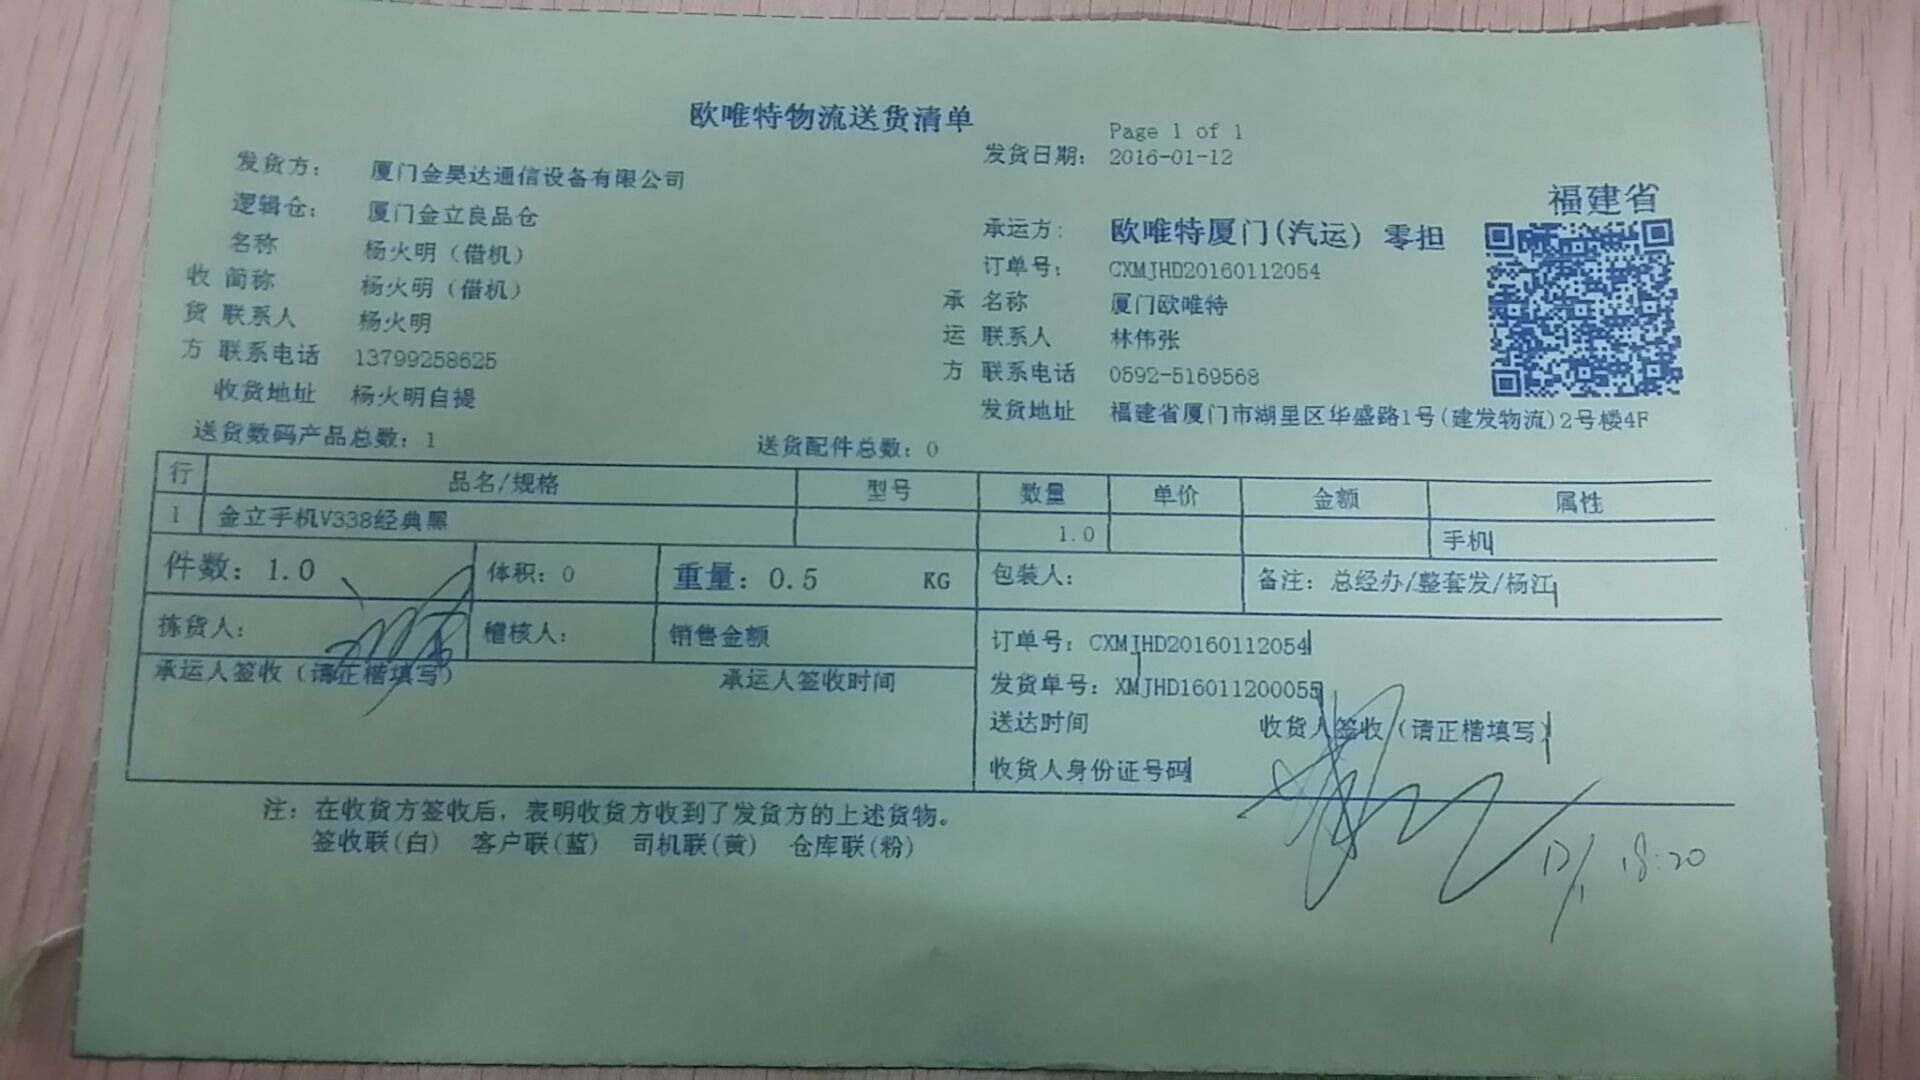 欧唯特物流送货清单
Page 1 of 1
发货日期: 2016-01-12
发货方: 厦门金昊达通信设备有限公司
福建省
逻辑仓: 厦门金立良品仓
承运方: 欧唯特厦门(汽运) 零担
名称 杨火明（借机）
订单号: CXMJHD20160112054
收 简称 杨火明（借机）
承 名称 厦门欧唯特
货 联系人 杨火明
运 联系人 林伟张
方 联系电话 13799258625
方 联系电话 0592-5169568
收货地址 杨火明自提
发货地址 福建省厦门市湖里区华盛路1号(建发物流)2号楼4F
送货数码产品总数: 1 送货配件总数: 0
行 品名/规格 型号 数量 单价 金额 属性
1 金立手机V338经典黑 1.0 手机
件数: 1.0 体积: 0 重量: 0.5 KG 包装人: 备注: 总经办/整套发/杨江
拣货人: 稽核人: 销售金额 订单号: CXMJHD20160112054
承运人签收（请正楷填写） 承运人签收时间 发货单号: XMJHD16011200055
送达时间 收货人签收（请正楷填写）
收货人身份证号码
注: 在收货方签收后, 表明收货方收到了发货方的上述货物。
签收联(白) 客户联(蓝) 司机联(黄) 仓库联(粉)
12/1 18:20